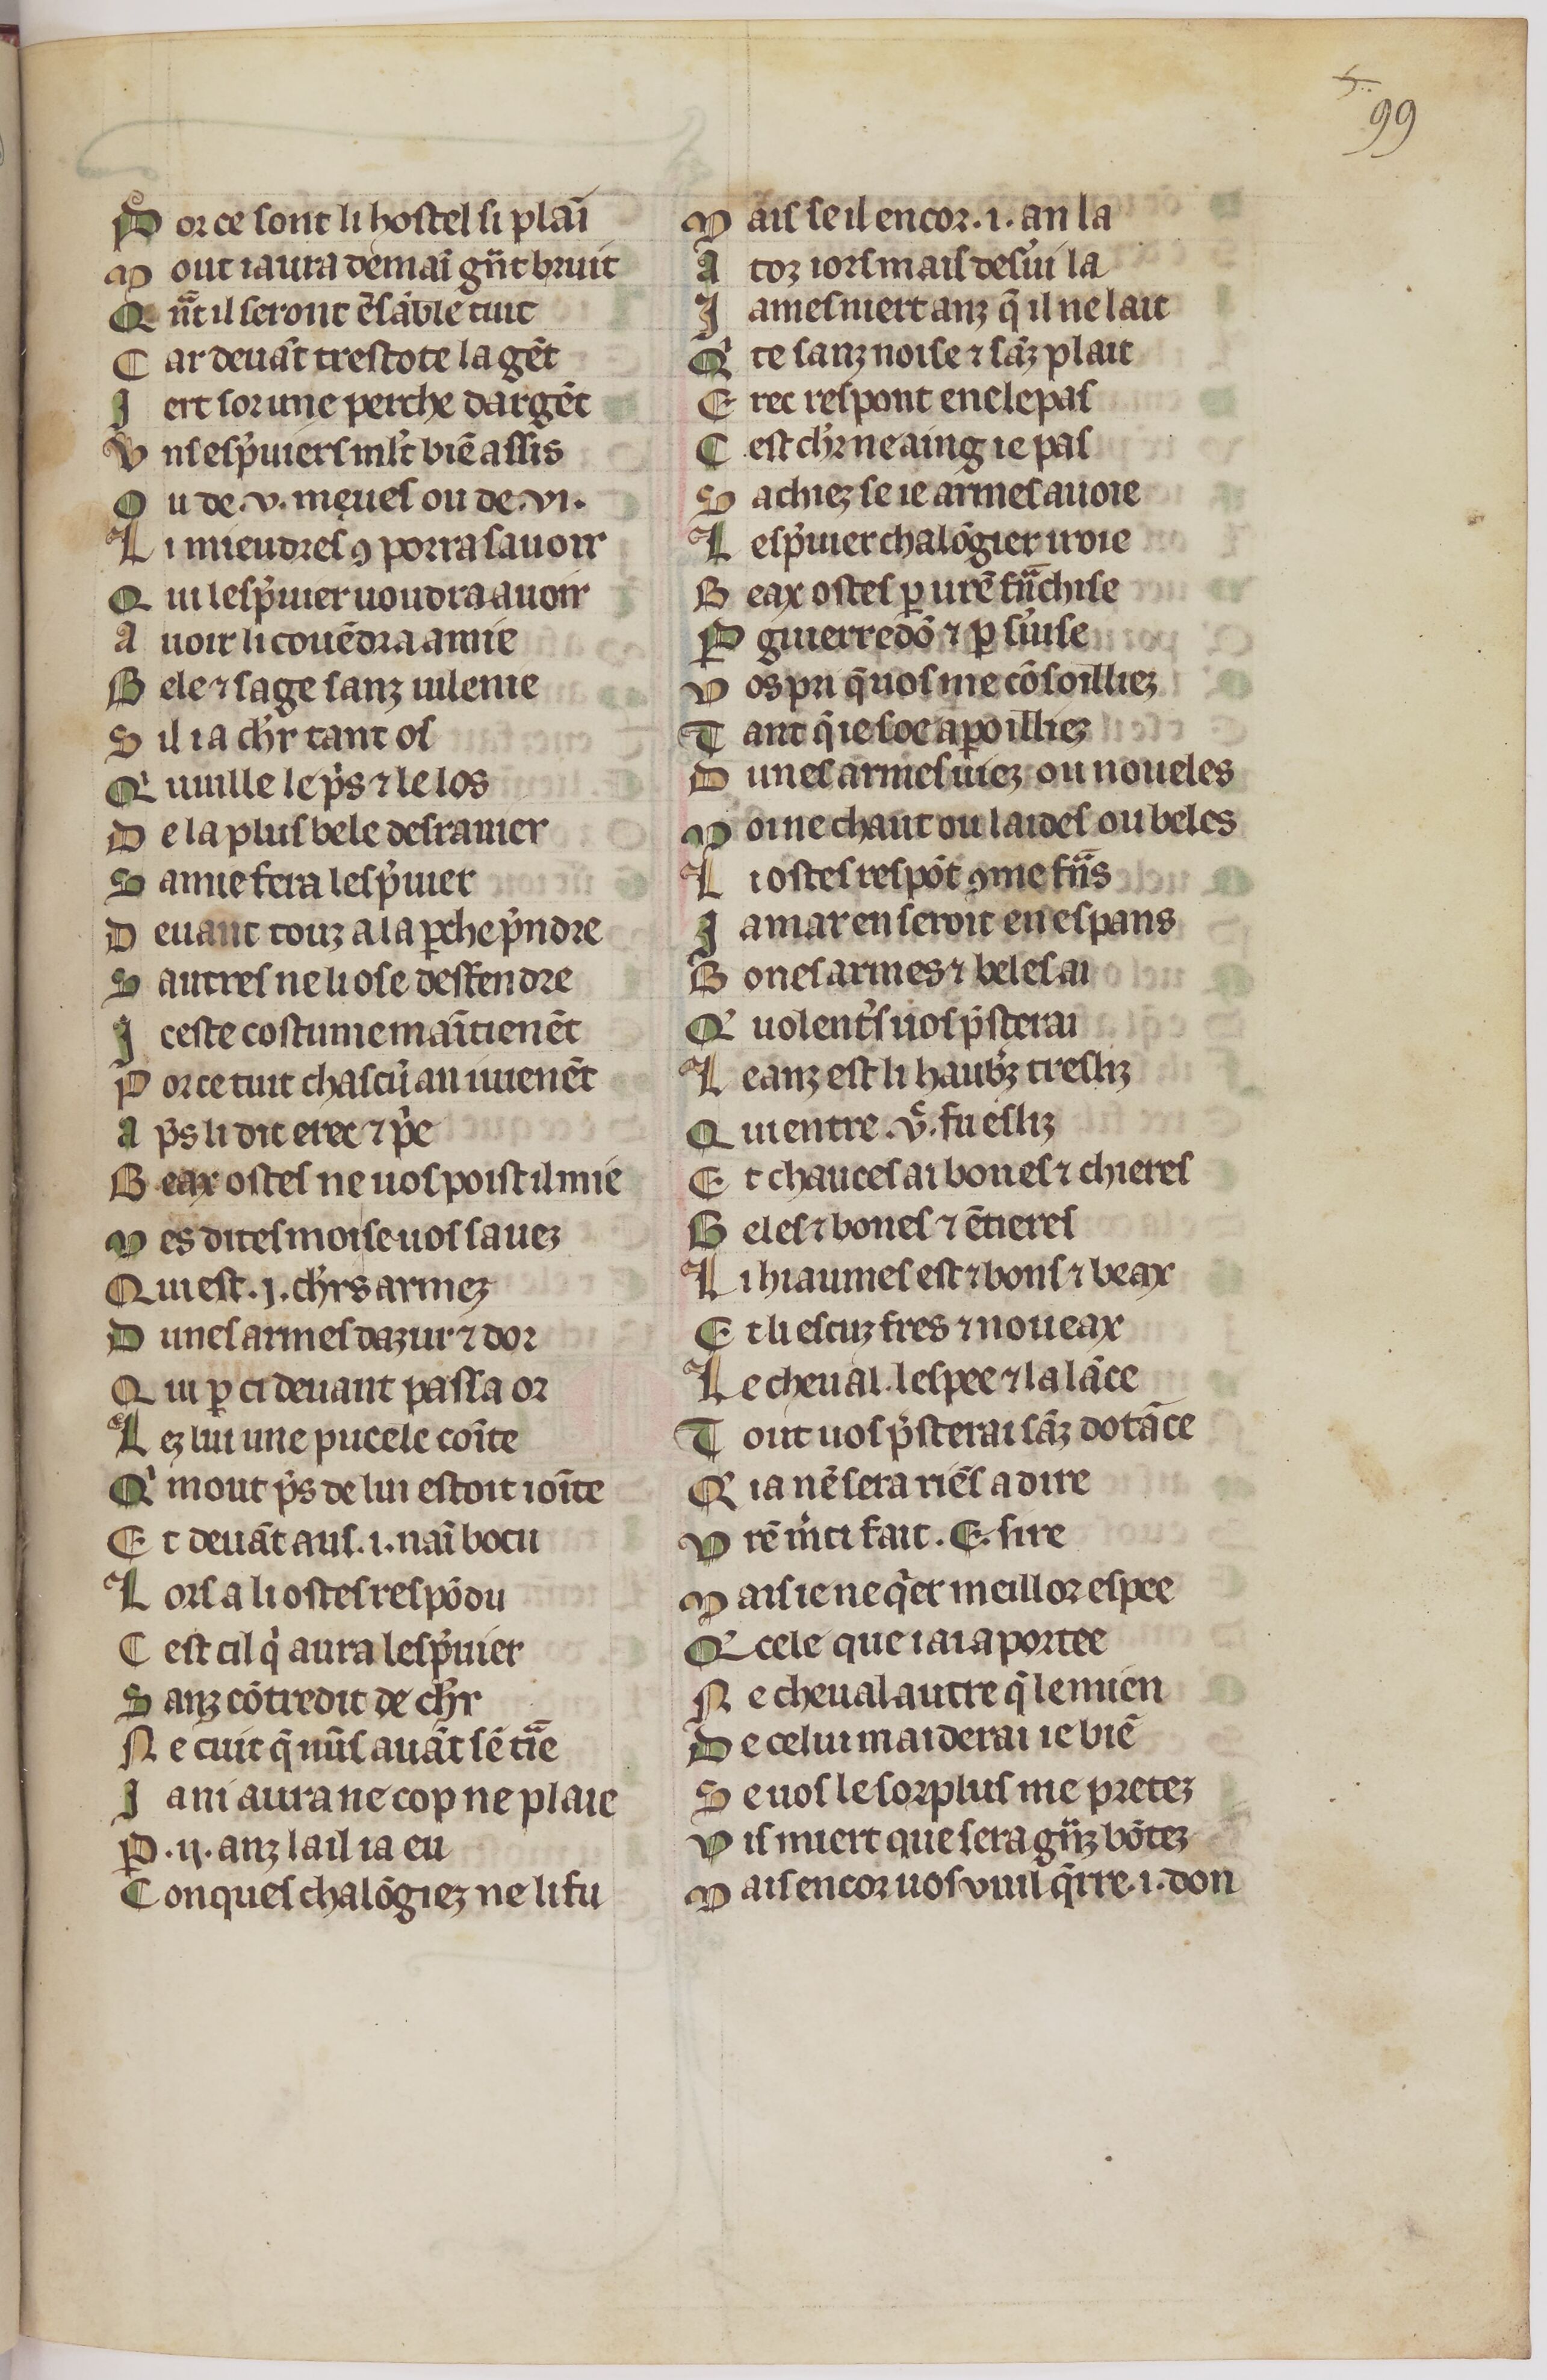 99
Por ce sont li hostel si plaī
Mout i aura demaī gᵃnt bruit
Qᵃnt il seront ēsāble tuit
Car deuāt trestote la gēt
Iert sor une perche dargēt
Vns esp̄uiers ml̄t biē assis
Ou de .v. męues ou de .vi.
Li mieudres ꝯ porra sauoir
Qui lesp̄uier uoudra auoir
Auoir li couēdra amie
Bele ⁊ sage sanz uilenie
Sil i a ch'r tant os
Q' uuille le p̄s ⁊ le los
De la plus bele desranier
Samie fera lesp̄uier
Deuant touz a la ꝑche p̄ndre
Sautres ne li ose desfendre
Iceste costume maītienēt
Por ce tuit chascū an i uienēt
Ap̄s li dit erec ⁊ p̄e
Beax ostes ne uos poist il mie
Mes dites moi se uos sauez
Qui est .j. ch'rs armez
Dunes armes dazur ⁊ dor
Qui ꝑ ci deuant passa or
Lez lui une pucele coīte
Q' mout p̄s de lui estoit ioīte
Et deuāt aus .i. naī bocu
Lors a li ostes respōdu
Cest cil q' aura lesp̄uier
Sanz cōtredit de ch'r
Ne cuit q̄ nūs auāt sē tᵃie
Ia ni aura ne cop ne plaie
Ꝑ .ij. anz la il ia eu
Conques chalōgiez ne li fu
Mais se il encor .i. an la
A toz iors mais desⁱui la
Iames niert anz q̄ il ne lait
Q' te sanz noise ⁊ sāz plait
Erec respont en elepas
Cest ch'r ne aing ie pas
Sachiez se ie armes auoie
Lesp̄uier chalōgier iroie
Beax ostes ꝑ urē fᵃnchise
Ꝑ guierredō ⁊ ꝑ s'uise
Vos pri q̄ uos me cōsoilliez
Tant q̄ ie soe apoilliez
Dunes armes uiez ou noueles
Moi ne chaut ou laides ou beles
Li ostes respōt ꝯme fᵃns
Ia mar en seroit en espans
Bones armes ⁊ beles ai
Q' uolent's uos p̄sterai
Leanz est li haub'z treslız
Qui entre .vᶜ. fu eslız
Et chauces ai bones ⁊ chieres
Beles ⁊ bones ⁊ ētieres
Li hiaumes est ⁊ bons ⁊ beax
Et li escuz fres ⁊ noueax
Le cheual. lespee ⁊ la lāce
Tout uos p̄sterai sāz dotāce
Q' ia nē sera riēs a dire
Vrē m'ci fait .E. sire
Mais ie ne q̄er meillor espee
Q' cele que iai aportee
Ne cheual autre q̄ le mien
De celui maiderai ie biē
Se uos le sorplus me pretez
Vis miert que sera gᵃnz bōtez
Mais encor uos vuil q̄rre .i. don